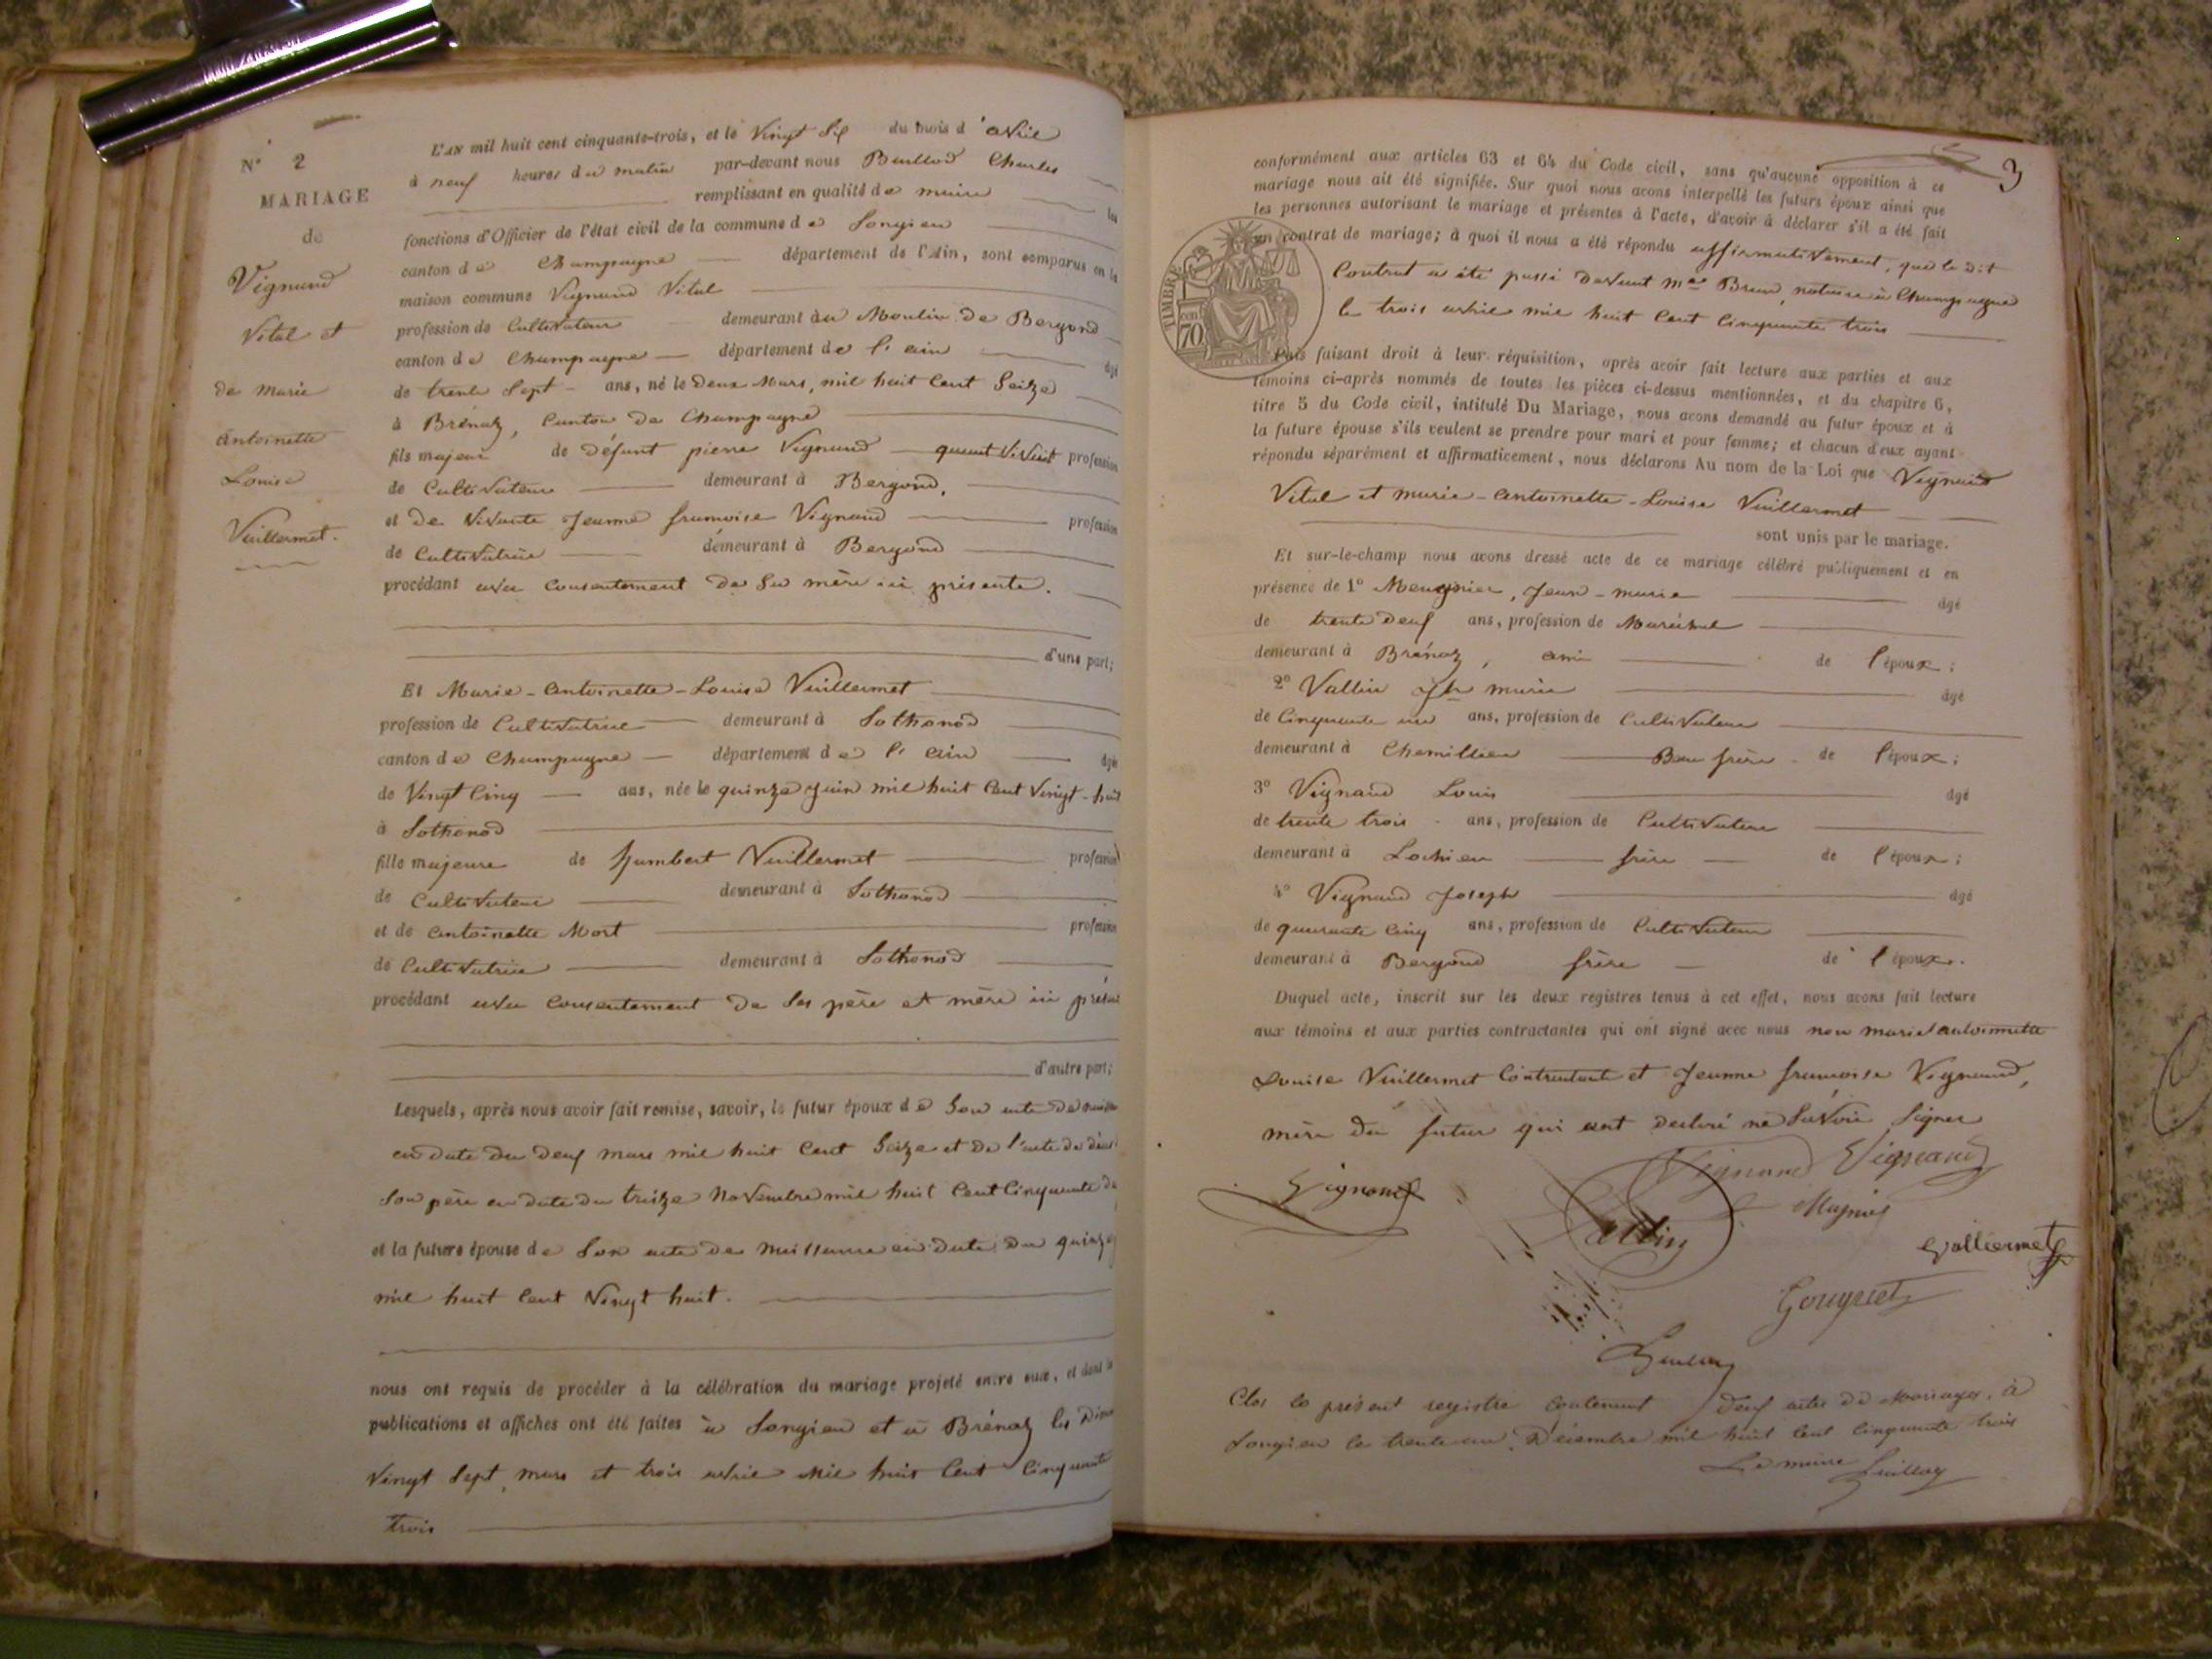 N° 2
MARIAGE
de
Vignand
Vital et
de marie
antoinette
Louise
Vuillermet.
L'AN mil huit cent cinquante-trois, et le Vingt Six du mois d'avril
à neuf heures du matin par-devant nous Charles
remplissant en qualité de maire les
fonctions d'Officier de l'état civil de la commune de Songieu
canton de Champagne département de l'Ain, sont comparus en la
maison commune Vignand Vital
profession de Cultivateur demeurant au Moulin de Bergond
canton de Champagne département de l'ain âgé
de trente Sept ans, né le deux Mars, mil huit Cent Seize
à Brénaz, Canton de Champagne
fils majeur de défunt pierre Vignand quant Vivait profession
de Cultivateur demeurant à Bergond,
et de Vivante Jeanne francoise Vignand profession
de Cultivatrice demeurant à Bergond
procédant avec Consentement de Sa mère ici présente.
d'une part;
Et Marie-Antoinette-Louise Vuillermet
profession de Cultivatrice demeurant à Sothonod
canton de Champagne département de l'ain âgée
de Vingt Cinq ans, née le quinze Juin mil huit Cent Vingt-huit
à Sothonod
fille majeure de Humbert Vuillermet profession
de Cultivateur demeurant à Sothonod
et de Antoinette Mort profession
de Cultivatrice demeurant à Sothonod
procédant avec Consentement de Ses père et mère ici
d'autre part;
Lesquels, après nous avoir fait remise, savoir, le futur époux de Son acte de
en date du deux mars mil huit Cent Seize et de l'acte de
Son père en date du treize Novembre mil huit Cent Cinquante
et la future épouse de Son acte de Naissance en date du quinze
mil huit Cent Vingt huit.
nous ont requis de procéder à la célébration du mariage projeté entre eux, et dont les
publications et affiches ont été faites à Songieu et à Brénaz les
Vingt Sept mars et trois avril Mil huit Cent Cinquante
trois
3
conformément aux articles 63 et 64 du Code civil, sans qu'aucune opposition à ce
mariage nous ait été signifiée. Sur quoi nous avons interpellé les futurs époux ainsi que
les personnes autorisant le mariage et présentes à l'acte, d'avoir à déclarer s'il a été fait
un contrat de mariage; à quoi il nous a été répondu affirmativement, que le dit
Contrat a été passé devant me Brun, notaire à Champagne
le trois avril mil huit Cent Cinquante trois
TIMBRE
70 cen
Puis faisant droit à leur réquisition, après avoir fait lecture aux parties et aux
témoins ci-après nommés de toutes les pièces ci-dessus mentionnées, et du chapitre 6,
titre 5 du Code civil, intitulé Du Mariage, nous avons demandé au futur époux et à
la future épouse s'ils veulent se prendre pour mari et pour femme; et chacun d'eux ayant
répondu séparément et affirmativement, nous déclarons Au nom de la Loi que Vignand
Vital et marie-Antoinette-Louise Vuillermet
sont unis par le mariage.
Et sur-le-champ nous avons dressé acte de ce mariage célébré publiquement et en
présence de 1° Meugnier, Jean-marie âgé
de trente deux ans, profession de Maréchal
demeurant à Brénaz, ami de l'époux;
2° Vallin Jh marie âgé
de Cinquante un ans, profession de Cultivateur
demeurant à Chemillieu Beau frère de l'époux;
3° Vignand Louis âgé
de trente trois ans, profession de Cultivateur
demeurant à Lochieu frère de l'époux;
4° Vignand Joseph âgé
de quarante Cinq ans, profession de Cultivateur
demeurant à Bergond frère de l'époux.
Duquel acte, inscrit sur les deux registres tenus à cet effet, nous avons fait lecture
aux témoins et aux parties contractantes qui ont signé avec nous non marie antoinette
Louise Vuillermet Contractante et Jeanne francoise Vignand,
mère du futur qui ont declaré ne Savoir Signer
Vignand Vignand
Vignand
Vallin
Vulliermet
Gouynet
Clos le présent registre Contenant deux actes de Mariages, à
Songieu le trente un Décembre mil huit Cent Cinquante trois
Le maire